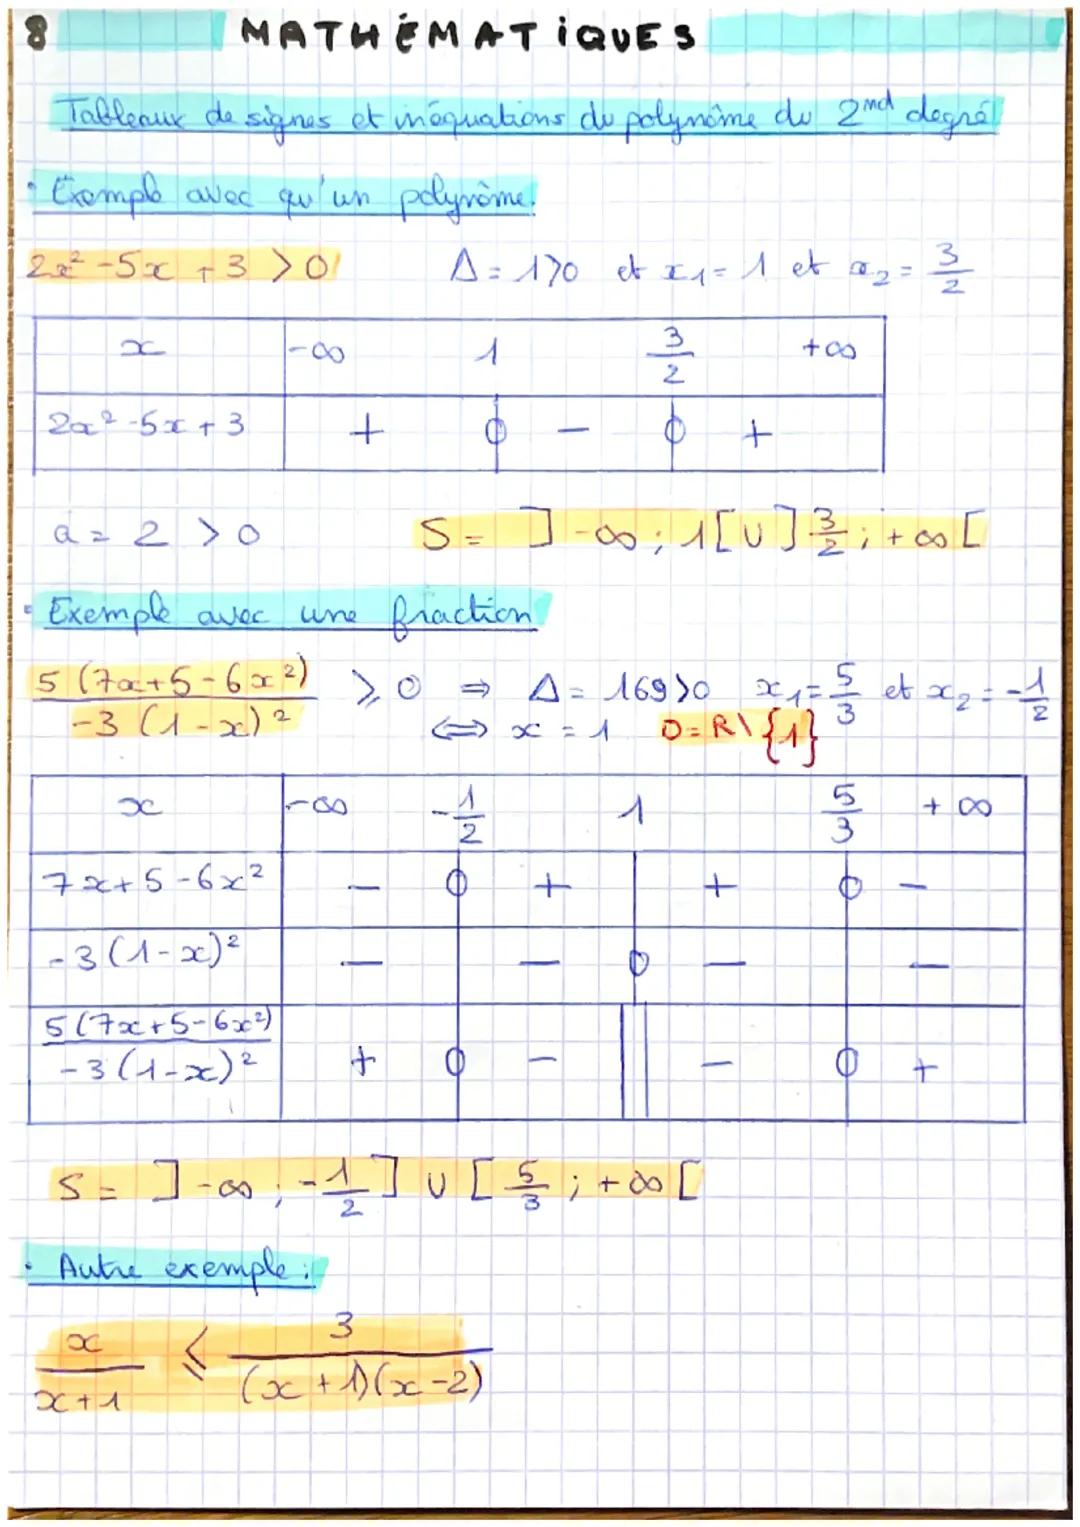 8 MATHÉMATIQUES
Tableaux de signes et inéquations du polynôme du 2nd degré
• Exemple avec qu'un polynôme.
2x² -5x + 3 > 0 Δ = 1>0 et x₁ = 1 et x₂ = 3/2
x -∞ 1 3/2 +∞
2x² -5x + 3 + 0 - 0 +
a = 2 > 0 S = ]-∞ ; 1[ U ]3/2 ; +∞[
• Exemple avec une fraction
5 (7x+5-6x²) / -3 (1-x)² ⩾ 0 ⇒ Δ = 169>0 x₁ = 5/3 et x₂ = -1/2
⟺ x = 1 D = R\{1}
x -∞ -1/2 1 5/3 +∞
7x+5-6x² - 0 + + 0 -
-3(1-x)² - - 0 - -
5(7x+5-6x²) / -3(1-x)² + 0 - || - 0 +
S = ]-∞ ; -1/2] U [5/3 ; +∞[
• Autre exemple :
x / x+1 ⩽ 3 / (x+1)(x-2)